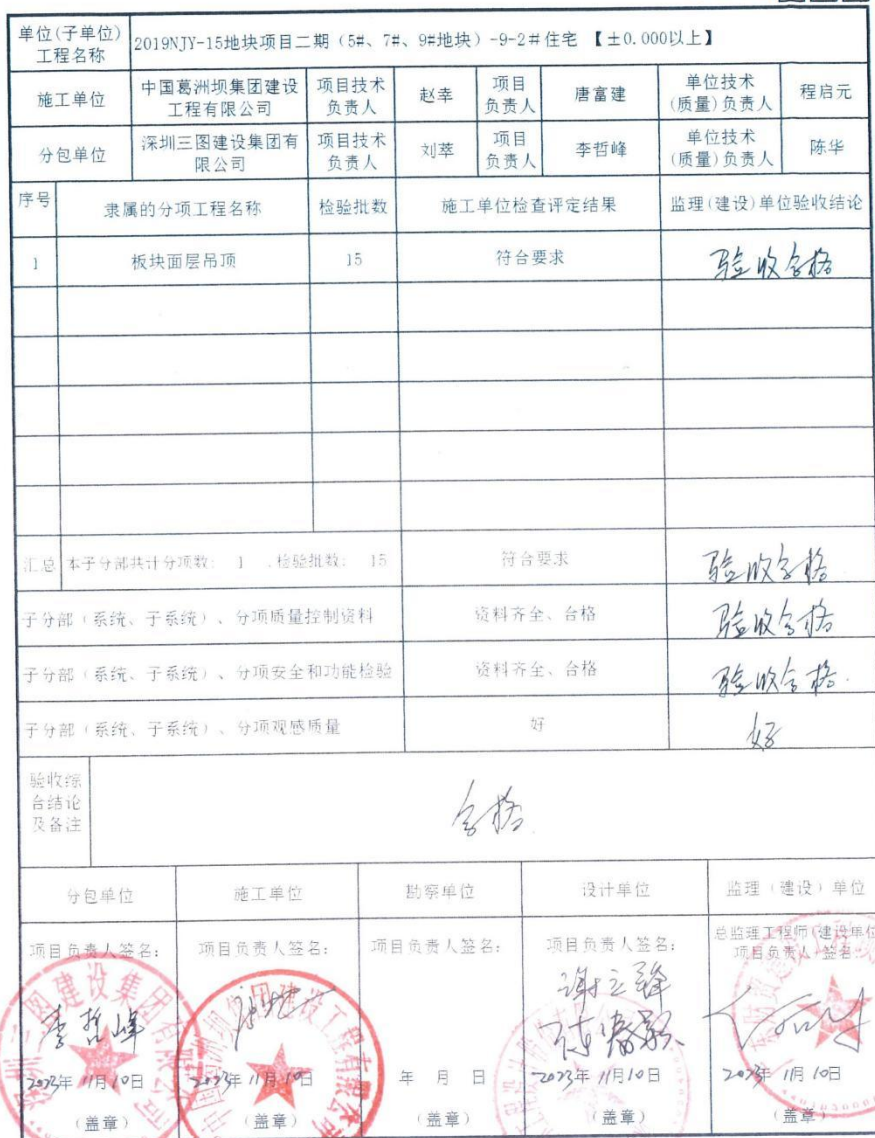 单位(子单位)
工程名称
2019NJY-15地块项目二期（5#、7#、9#地块）-9-2#住宅 【±0.000以上】
施工单位
中国葛洲坝集团建设
工程有限公司
项目技术
负责人
赵幸
项目
负责人
唐富建
单位技术
(质量)负责人
程启元
分包单位
深圳三图建设集团有
限公司
项目技术
负责人
刘萃
项目
负责人
李哲峰
单位技术
(质量)负责人
陈华
序号
隶属的分项工程名称
检验批数
施工单位检查评定结果
监理(建设)单位验收结论
1
板块面层吊顶
15
符合要求
验收合格
汇总
本子分部共计分项数： 1 ,检验批数： 15
符合要求
验收合格
子分部（系统、子系统）、分项质量控制资料
资料齐全、合格
验收合格
子分部（系统、子系统）、分项安全和功能检验
资料齐全、合格
验收合格.
子分部（系统、子系统）、分项观感质量
好
好
验收综
合结论
及备注
合格
分包单位
施工单位
勘察单位
设计单位
监理（建设）单位
项目负责人签名：
项目负责人签名：
项目负责人签名：
项目负责人签名：
总监理工程师(建设单位
项目负责人)签名：
李哲峰
2023年 11月 10日
2023年 11月 10日
年 月 日
2023年 11月 10日
2023年 11月 10日
（盖章）
（盖章）
（盖章）
（盖章）
（盖章）